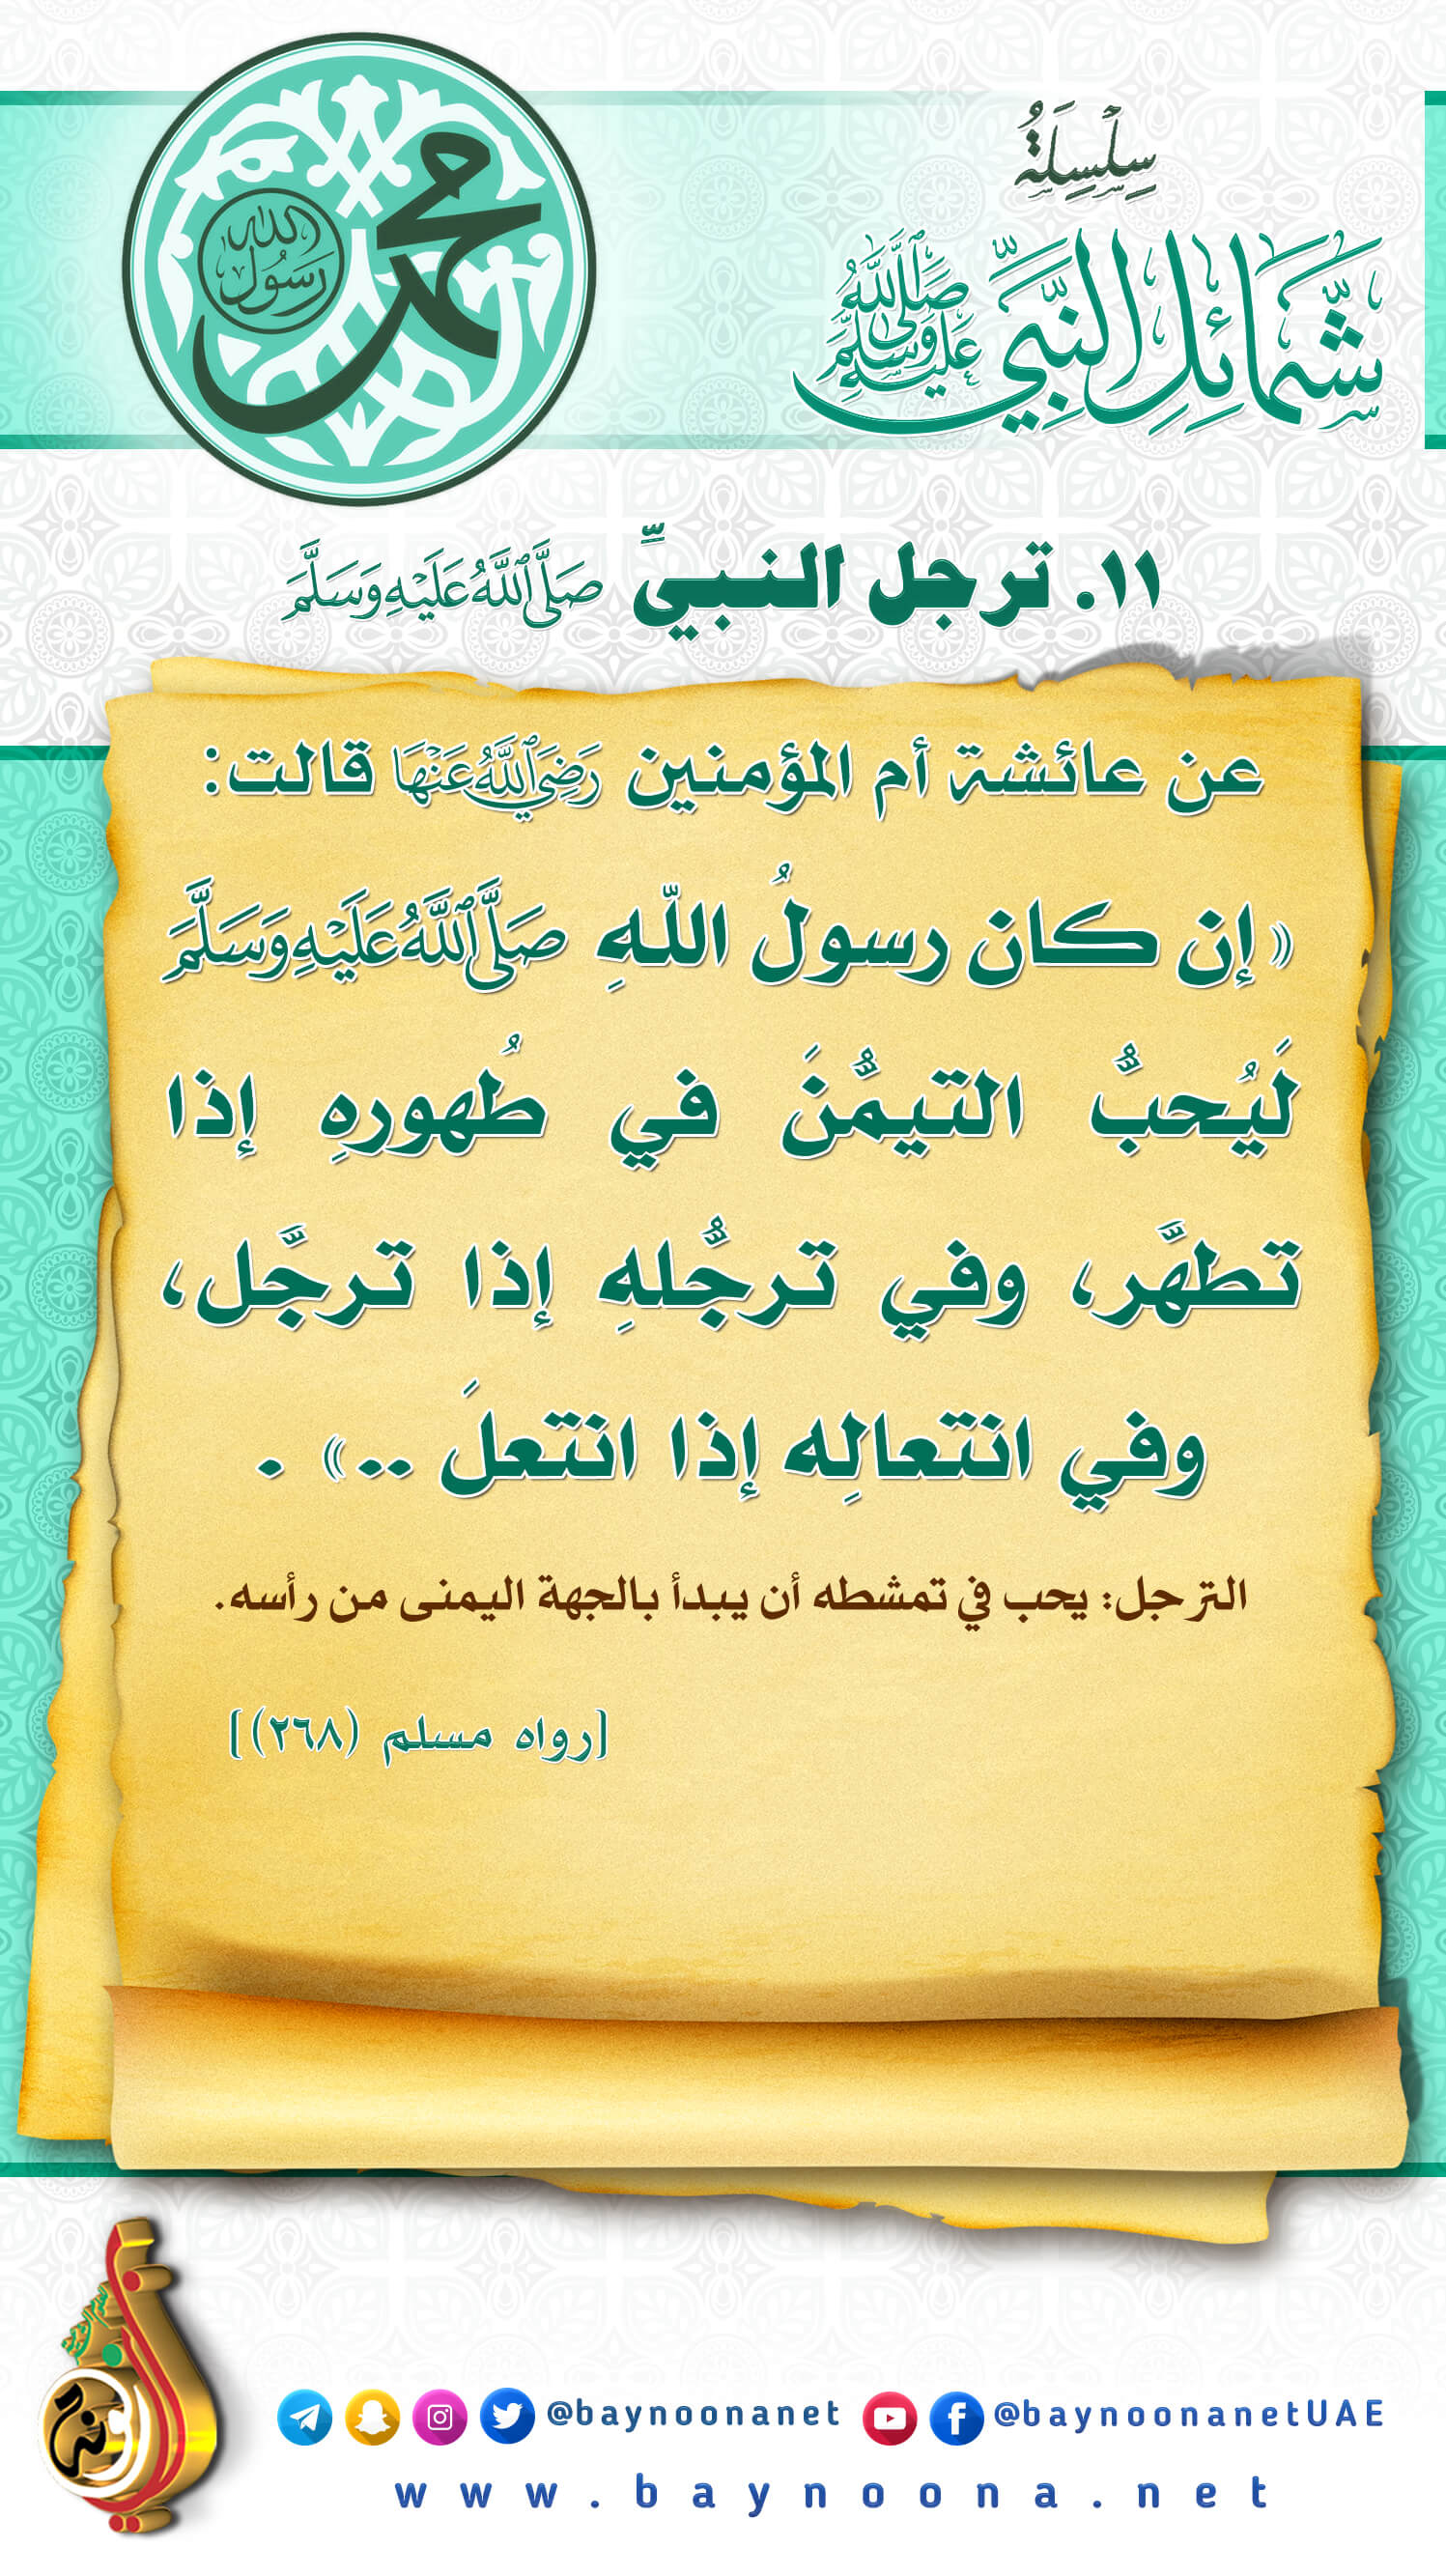 سِلْسِلَةُ
شَمَائِلِ النَّبِيِّ صَلَّى اللَّهُ عَلَيْهِ وَسَلَّمَ
محمد
رَسُول
الله
١١. ترجل النبيِّ صَلَّى اللَّهُ عَلَيْهِ وَسَلَّمَ
عن عائشة أم المؤمنين رَضِيَ اللَّهُ عَنْهَا قالت:
«إن كان رسولُ اللّهِ صَلَّى اللَّهُ عَلَيْهِ وَسَلَّمَ
لَيُحبُّ التيمُّنَ في طُهورهِ إذا
تطهَّر، وفي ترجُّلهِ إذا ترجَّل،
وفي انتعالِه إذا انتعلَ ..» .
الترجل: يحب في تمشطه أن يبدأ بالجهة اليمنى من رأسه.
[رواه مسلم (٢٦٨)]
@baynoonanet @baynoonanetUAE
www.baynoona.net